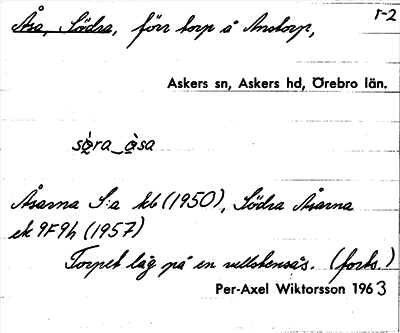 Åsa, Södra, förr torp å Anstorp,
1-2
Askers sn, Askers hd, Örebro län.
sø̀ra_ àsa
Åsarna S:a kb (1950), Södra Åsarna
ek 9F9h (1957)
Torpet låg på en rullstensås. (forts.)
Per-Axel Wiktorsson 1963